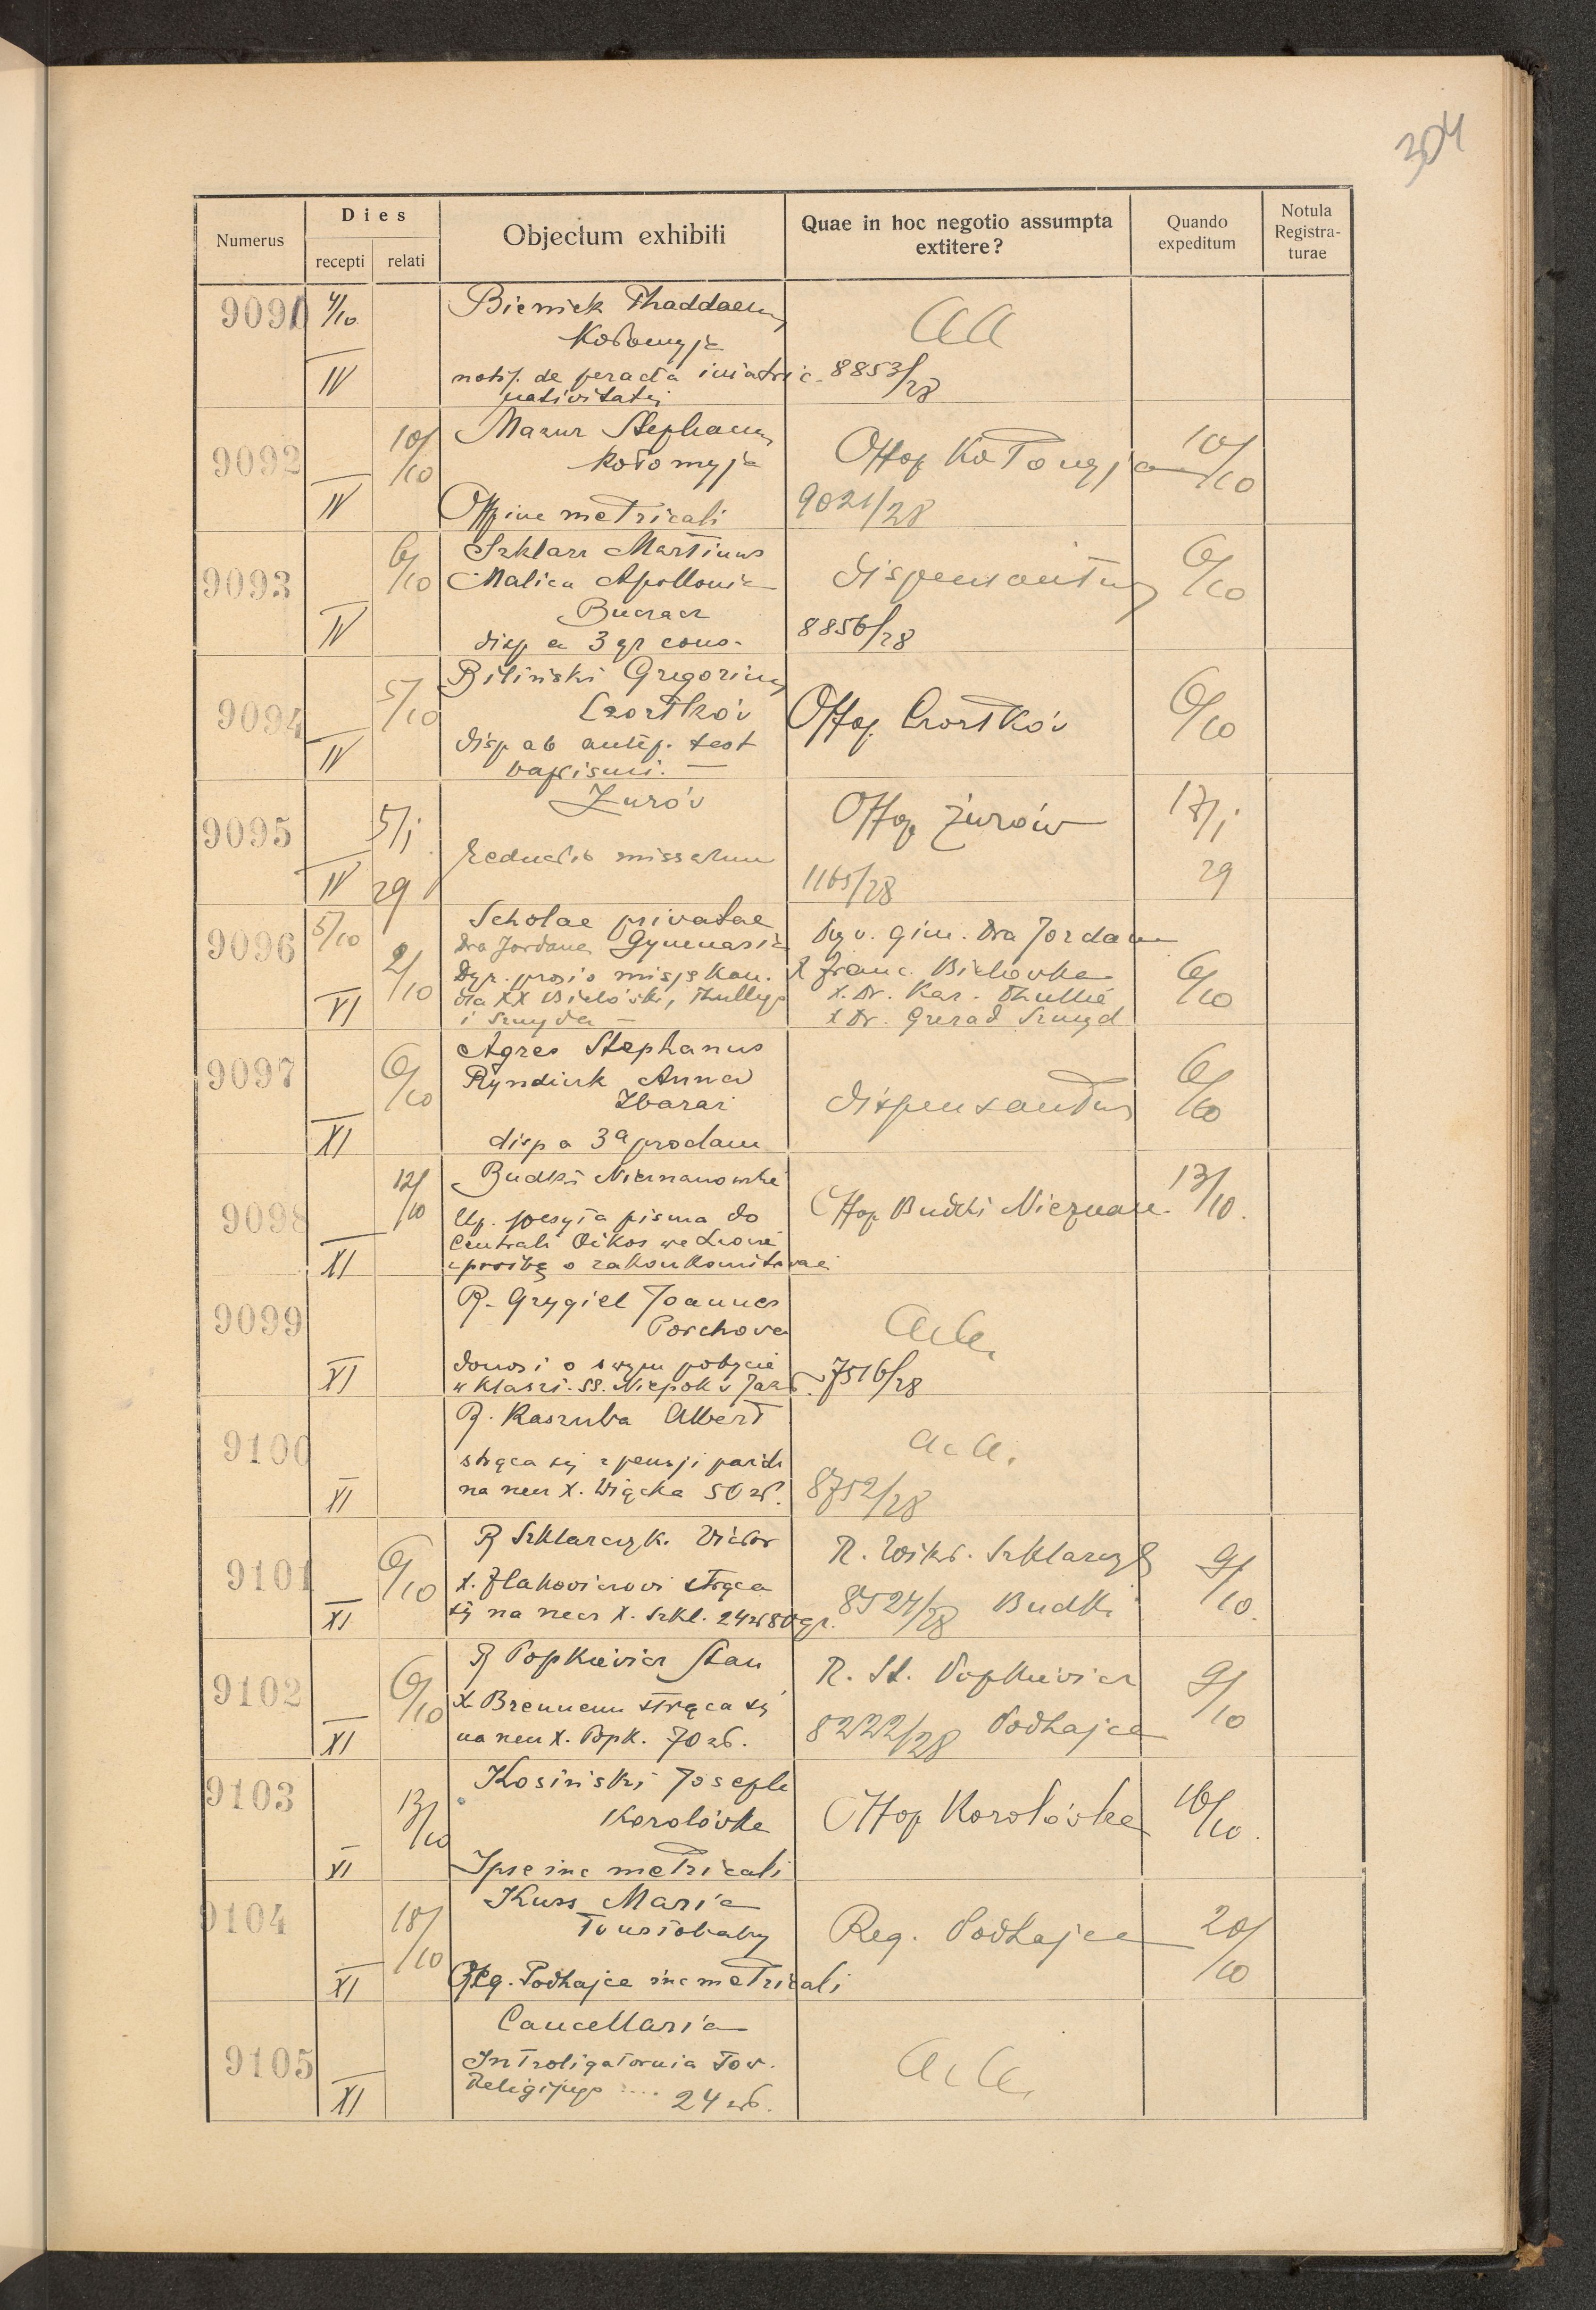 304
Numerus
Dies
recepti
relati
Objectum exhibiti
Quae in hoc negotio assumpta
extitere?
Quando
expeditum
Notula
Registra-
turae
9091
4/10
IV
Kołomyja
notif. de peracta
nativitatis
aa
8853/28
9092
10/10
IV
Mazur Stephanus
Kołomyja
metricali
Offop Kołomyja
9021/28
10/10
9093
6/10
IV
Szklarz Martinus
Malica Apollonia
Buczacz
disp a 3 gr cons.
dispensantur
8856/28
6/10
9094
5/10
IV
Biliński Gregorius
Czortków
disp ab test
baptismi. —
Offop. Czortków
6/10
9095
5/i
29
IV
Żurów
reductio missarum
Offop Żurów
1165/28
17/i
29
9096
5/10
2/10
VI
Scholae privatae
Dra Jordana Gymnasia
Dyr. prosi o misję kan.
dla XX
i Szmyda —
Dyr. gim. Dra Jordana
X Franc.
X. Dr. Kar. Thullie
X Dr. Szmyd
6/10
9097
6/10
XI
Agres Stephanus
Anna
Zbaraż
disp a 3a proclam
dispensantur
6/10
9098
12/10
XI
Budki Nieznanowskie
pisma do
Centrali Oikos we Lwowie
z prośbą o
Offop Budki Nieznan.
13/10.
9099
XI
R. Grygiel Joannes
Porchova
donosi o swym pobycie
w klaszt. SS. Niepok v Jazł.
aa.
7516/28
9100
XI
R. Kaszuba Albert
strąca się z pensji paźdz
na X. Wiącka 50 zł.
a a.
8752/28
9101
6/10
XI
R Szklarczyk. Victor
strąca
się na X. Szkl. 24 zł 80 gr.
R. Wikt. Szklarczyk
8527/28 Budki
9/10.
9102
6/10
XI
R Popkievicz Stan
X strąca się
na X. Popk. 70 zł.
R. St. Popkievicz
8222/28 Podhajce
9/10
9103
13/10
XI
Kosiński Joseph
Korolówka
Ipse inc metricali
Offop Korolówka
16/10.
9104
18/10
XI
Kuss Maria
Toustobaby
Reg. Podhajce inc metricali
Reg. Podhajce
20/10
9105
XI
Cancellaria
Introligatornia Tow.
Religijnego .... 24 zł.
aa.